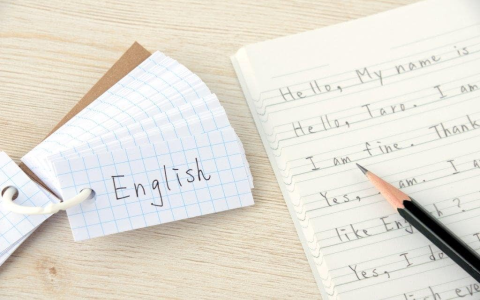 English
Hello, My name is
Hello, Taro. I am
I am fine. Thank
Yes, am. I a
like Eng ?
Yes, I do I
lish eve